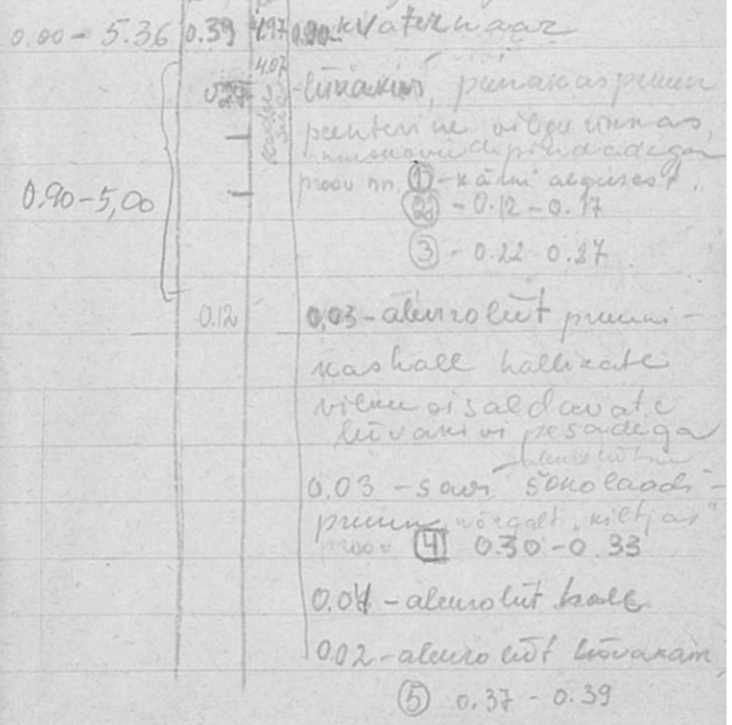 0.00 - 5.36 0.39 4.97 0.90 - kvaternaar
4.07
0.27 - liivakivi, punakaspruun
0.90-5,00
proov nr. ① - kaimi algusest.
② - 0.12 - 0.17
③ - 0.22 - 0.27
0.12 0,03 - aleuroliit pruuni-
kashall hallikate
vilku sisaldavate
liivakivi pesadega
0.03 - savi, šokolaadi-
pruun nõrgalt „kiltjas"
proov 4 0.30-0.33
0.04 - aleuroliit hall
0.02 - aleuroliit liivakam
⑤ 0.37 - 0.39